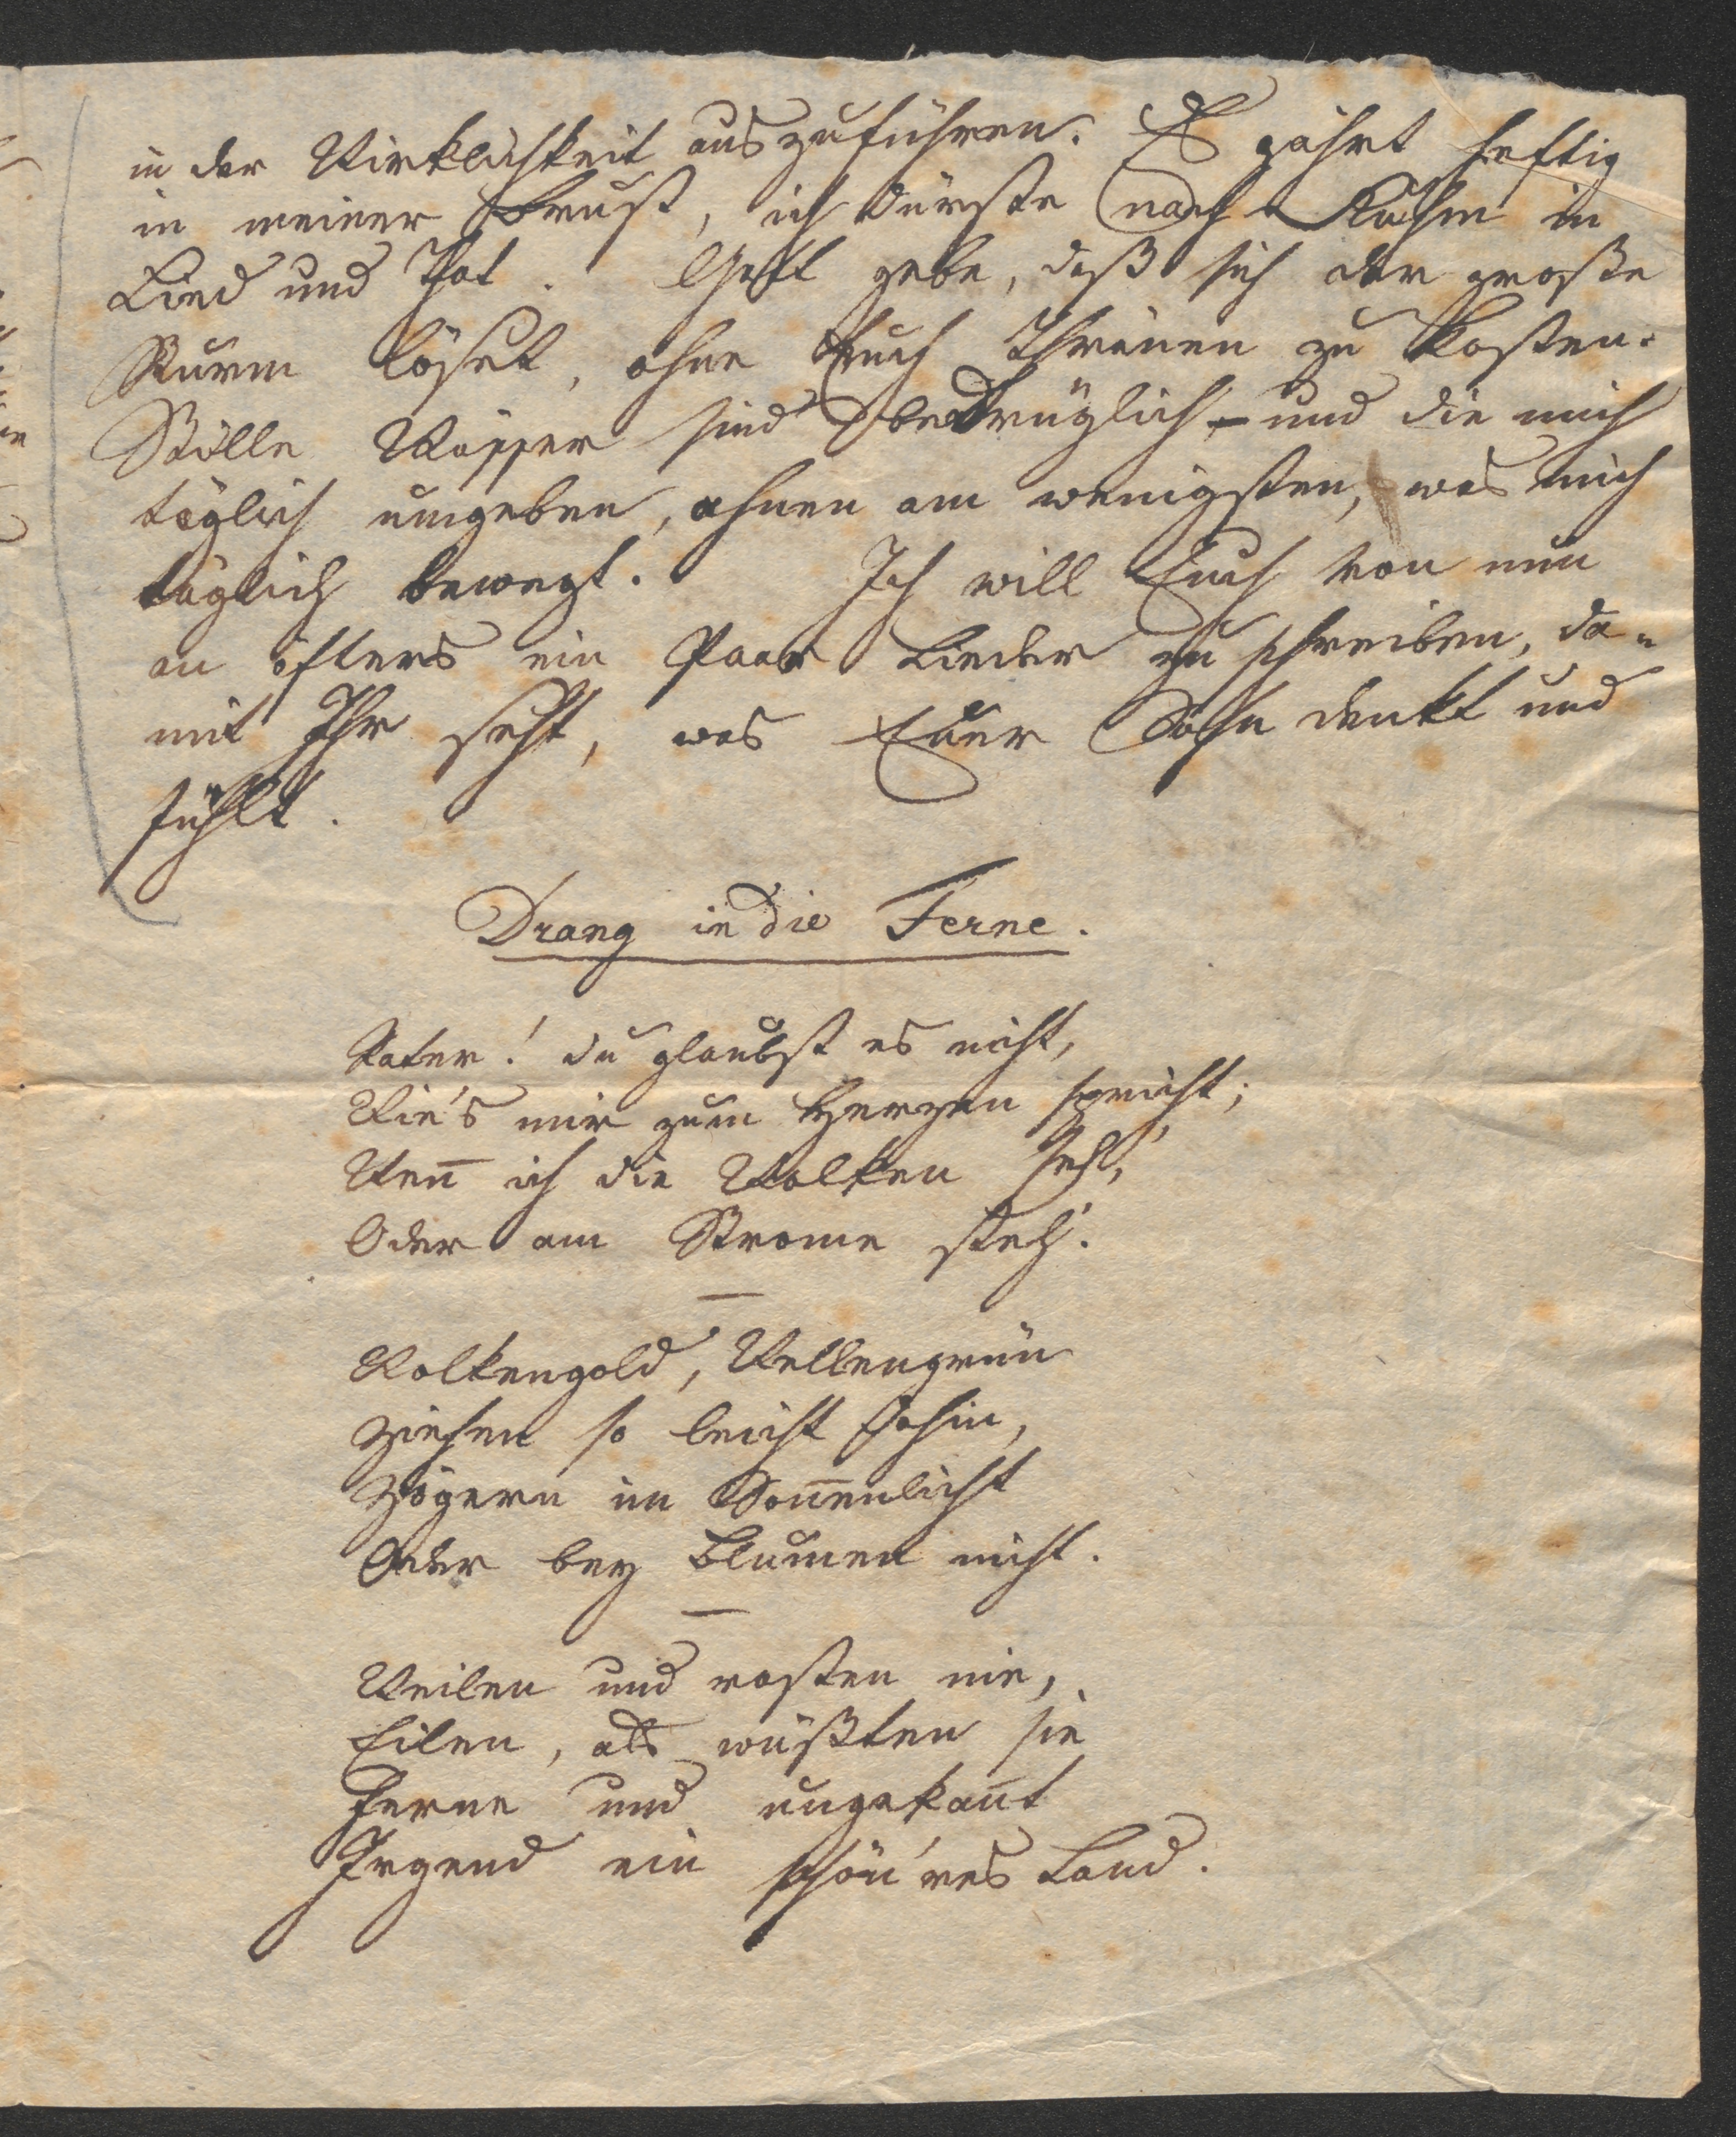 in der Wirklichkeit auszuführen. Es gährt heftig
in meiner Brust, ich dürste nach Ruhm in
Lied und That. Gott gebe, daß sich der große
Sturm löset, ohne Euch Thränen zu kosten.
Stille Wässer sind betrüglich – und die mich
täglich umgeben, ahnen am wenigsten, was mich
täglich bewegt. Ich will Euch von nun
an öfters ein Paar Lieder zu schreiben, da-
mit Ihr seht, was Euer Sohn denkt und
fühlt.
Drang in die Ferne.
Vater! du glaubst es nicht,
Wie's mir zum Herzen spricht;
Weñ ich die Wolken seh',
Oder am Strome steh'.
—
Wolkengold, Wellengrün
Ziehen so leicht dahin,
Zögern im Soñenlicht
Oder bey Blumen nicht.
—
Weilen und rasten nie,
Eilen, als wüßten sie
Ferne und ungekañt
Irgend ein schön'res Land.